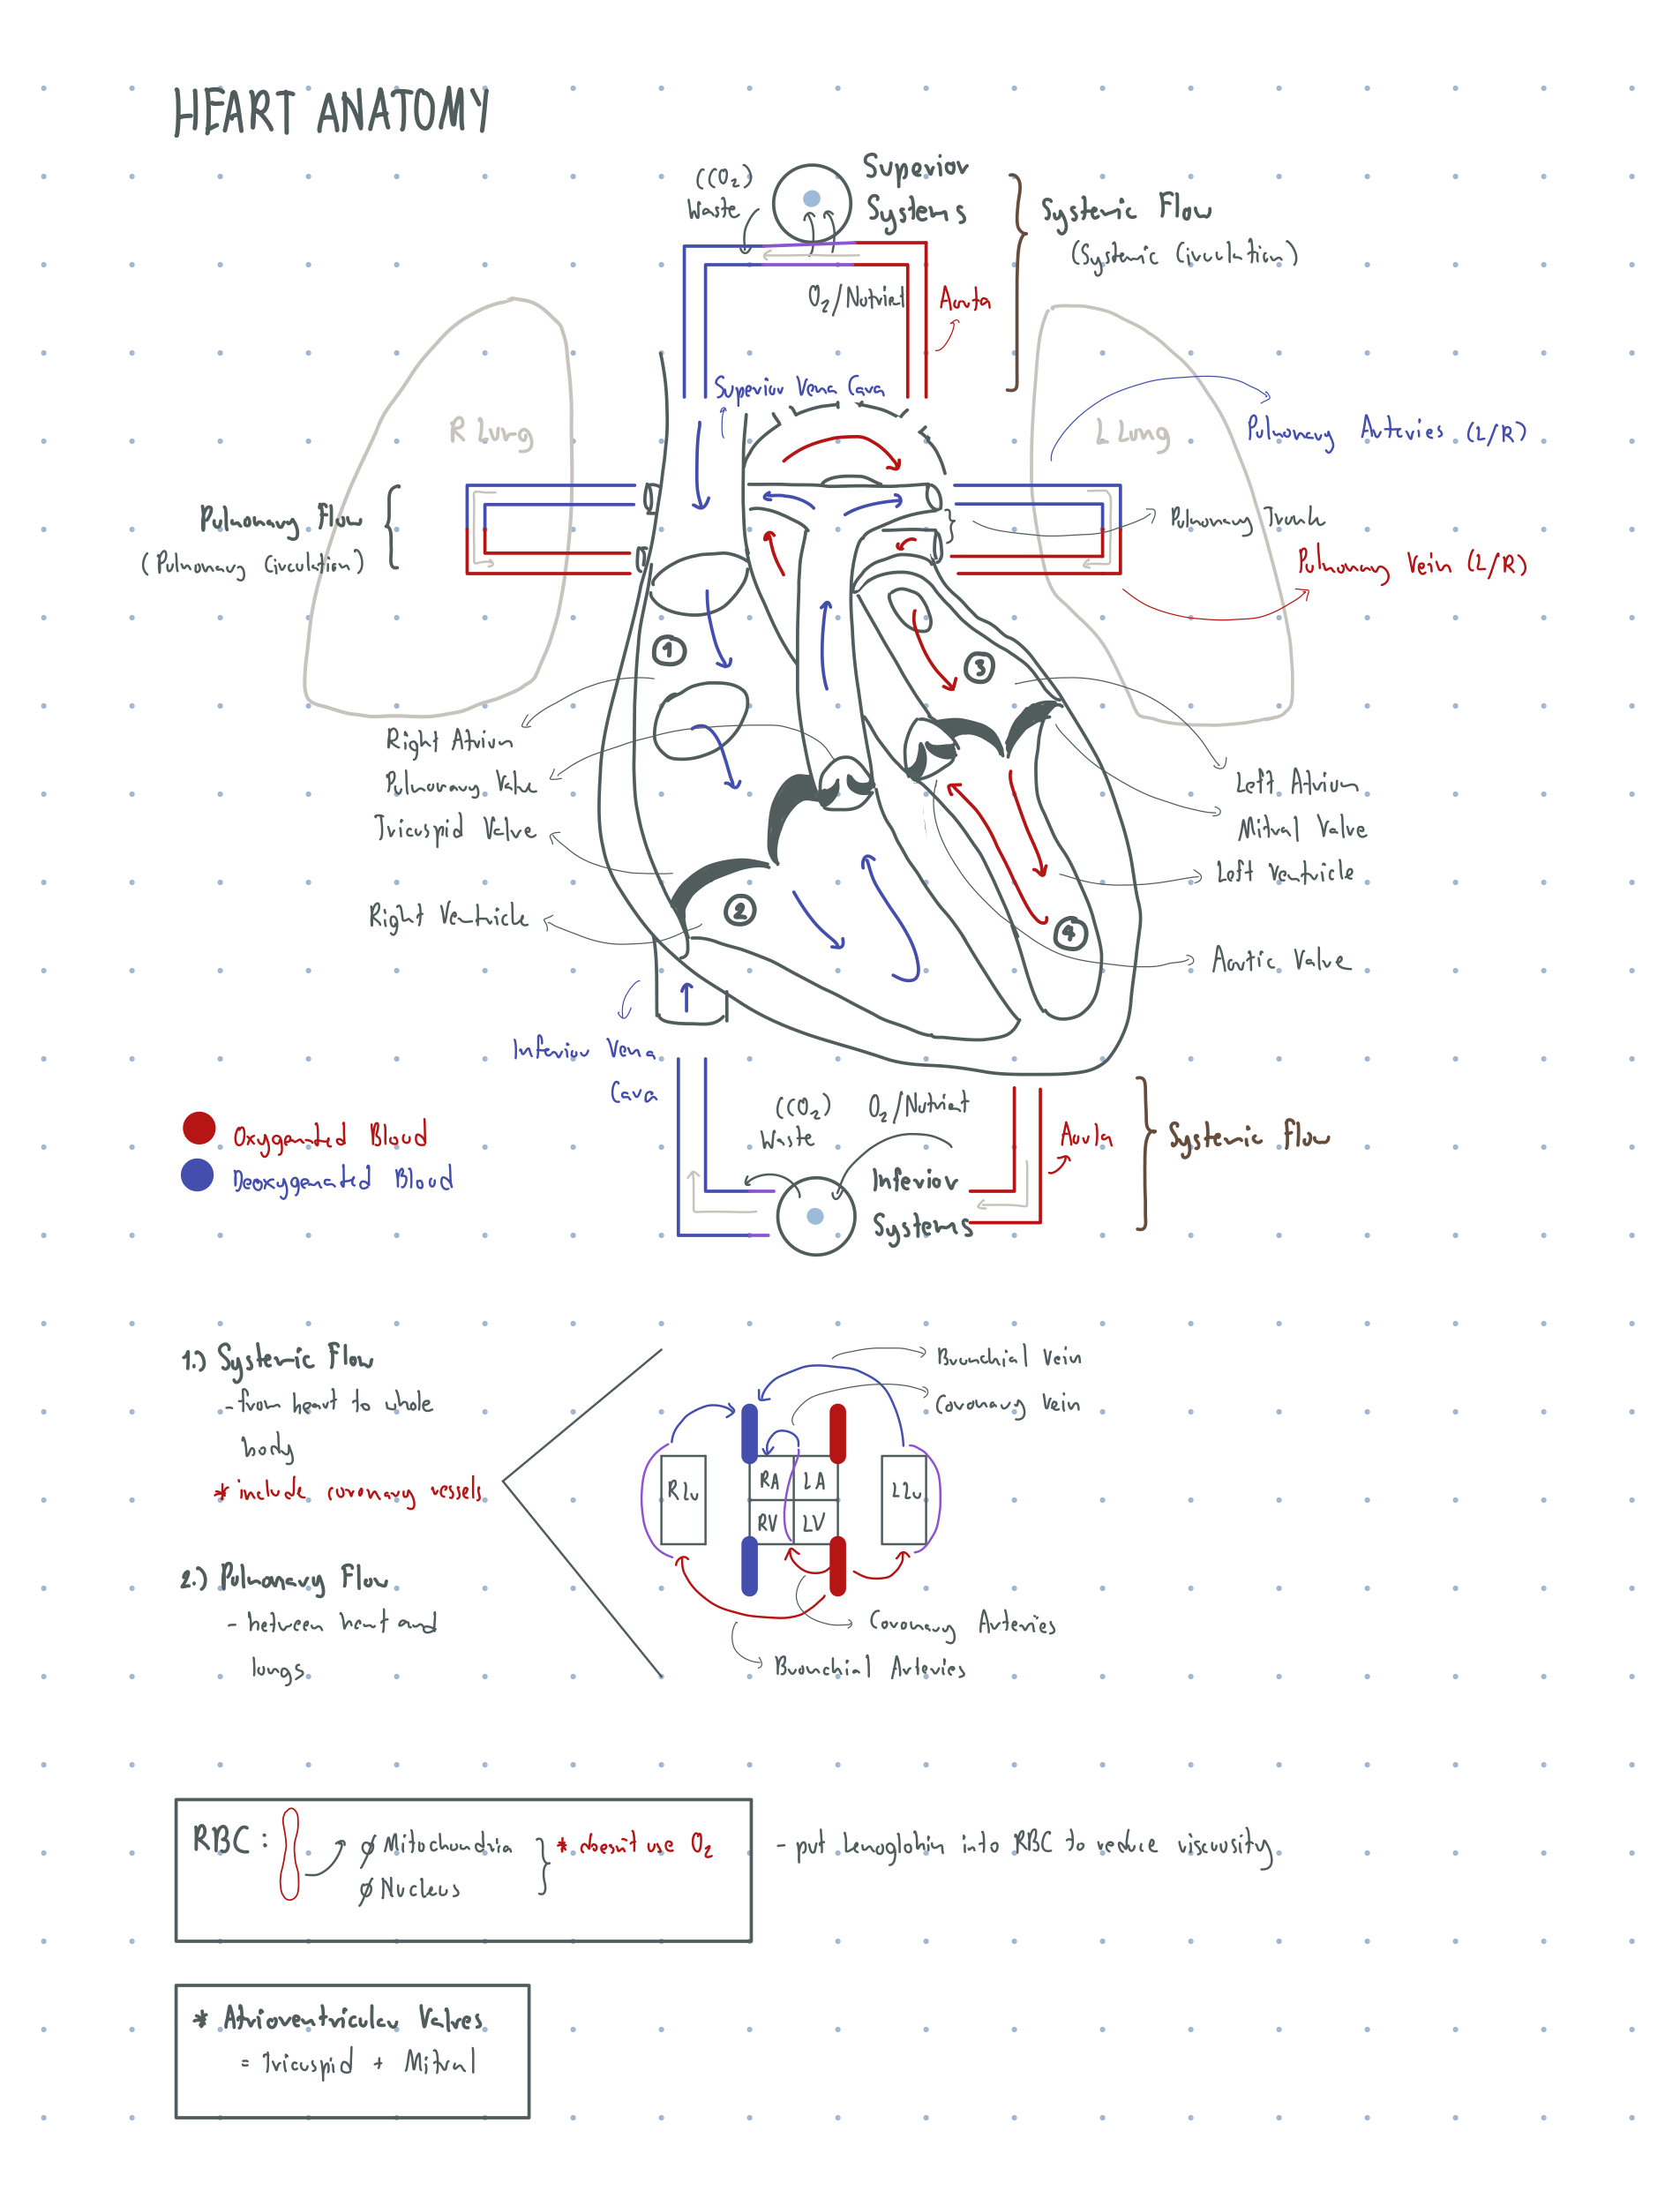 HEART ANATOMY
(CO₂)
Waste
Superior
Systems
Systemic Flow
(Systemic Circulation)
O₂/Nutrient
Aorta
Superior Vena Cava
R Lung
L Lung
Pulmonary Arteries (L/R)
Pulmonary Flow
(Pulmonary Circulation)
Pulmonary Trunk
Pulmonary Vein (L/R)
1
3
Right Atrium
Pulmonary Valve
Tricuspid Valve
Right Ventricle
Left Atrium
Mitral Valve
Left Ventricle
2
4
Aortic Valve
Inferior Vena
Cava
(CO₂)
Waste
O₂/Nutrient
Aorta
Systemic Flow
Inferior
Systems
Oxygenated Blood
Deoxygenated Blood
1.) Systemic Flow
-from heart to whole
body
* include coronary vessels
2.) Pulmonary Flow
- between heart and
lungs
Bronchial Vein
Coronary Vein
R Lu
RA
LA
L Lu
RV
LV
Coronary Arteries
Bronchial Arteries
RBC :
∅ Mitochondria
∅ Nucleus
* doesn't use O₂
- put hemoglobin into RBC to reduce viscousity
* Atrioventricular Valves
= Tricuspid + Mitral